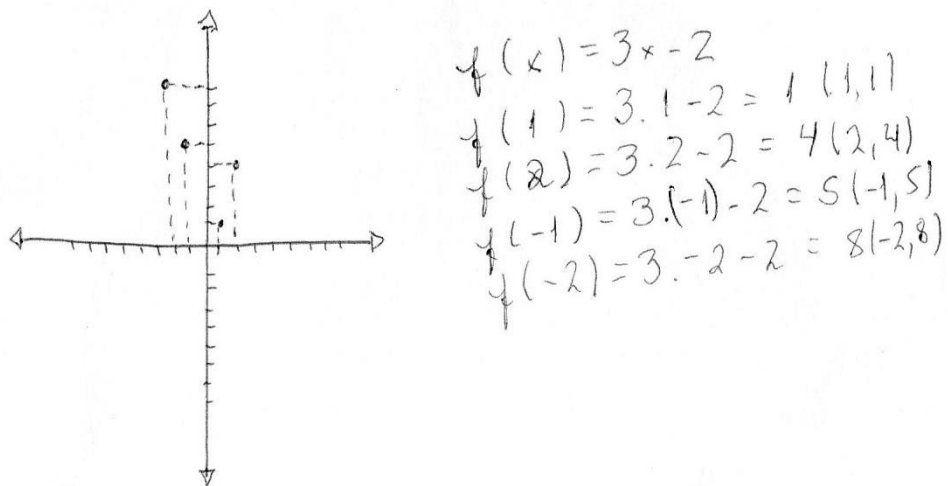 f(x) = 3x - 2
f(1) = 3.1 - 2 = 1 (1,1)
f(2) = 3.2 - 2 = 4 (2,4)
f(-1) = 3.(-1) - 2 = 5 (-1,5)
f(-2) = 3.-2 - 2 = 8 (-2,8)